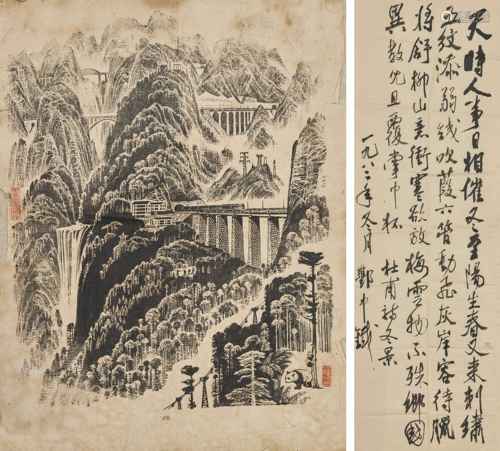 天時人事日相催冬至陽生春又来刺繡
五紋添弱线吹葭六管動飛灰岸容待臘
将舒柳山意衝寒欲放梅雲物不殊鄉國
異教兒且覆掌中杯 杜甫詩冬景
一九八二年冬月 鄧中鐵